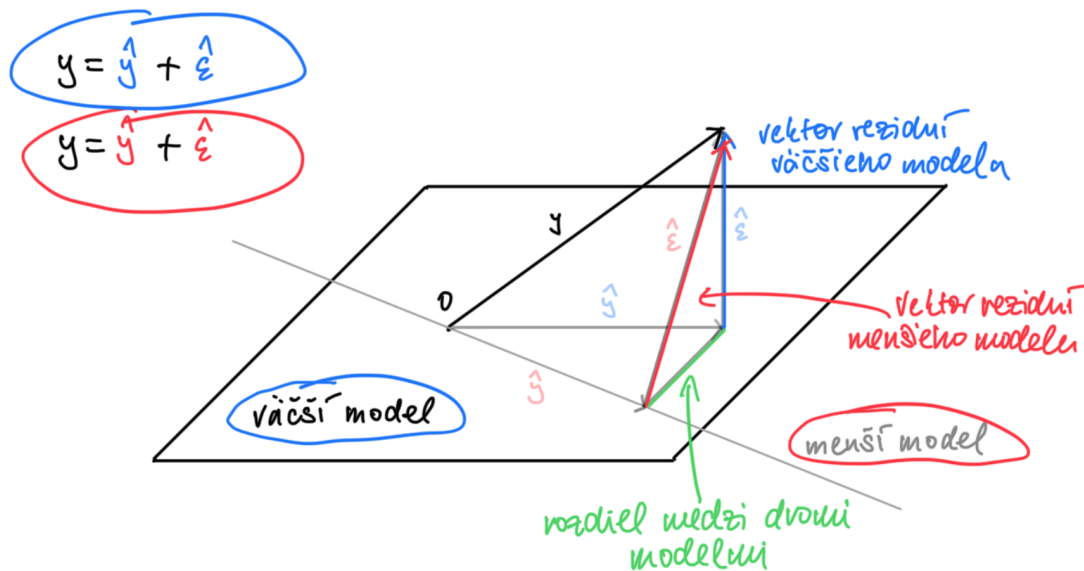 y = ŷ + ε̂
y = ŷ + ε̂
vektor reziduí
väčšieho modela
y
ε̂
ε̂
0
ŷ
vektor reziduí
menšieho modelu
ŷ
väčší model
menší model
rozdiel medzi dvomi
modelmi